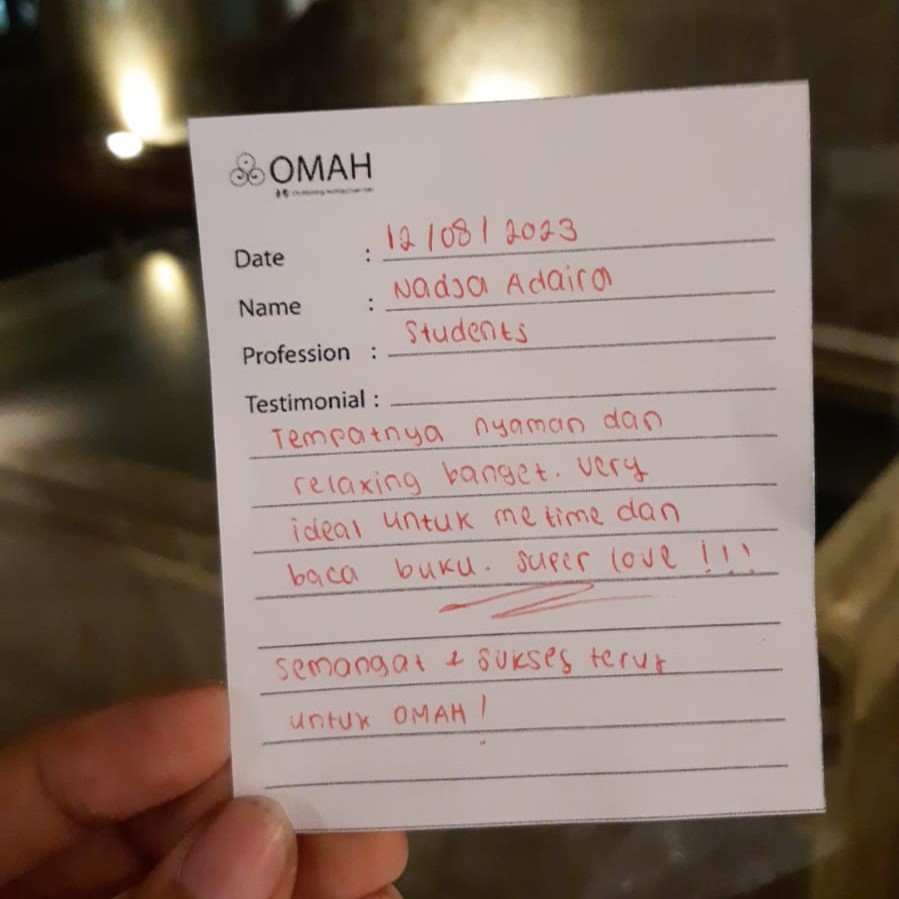 OMAH
Date : 12/08/2023
Name : Nadja Adaira
Profession : Students
Testimonial :
Tempatnya nyaman dan
relaxing banget. very
ideal untuk me time dan
baca buku. super love !!!
semangat & sukses terus
untuk OMAH !